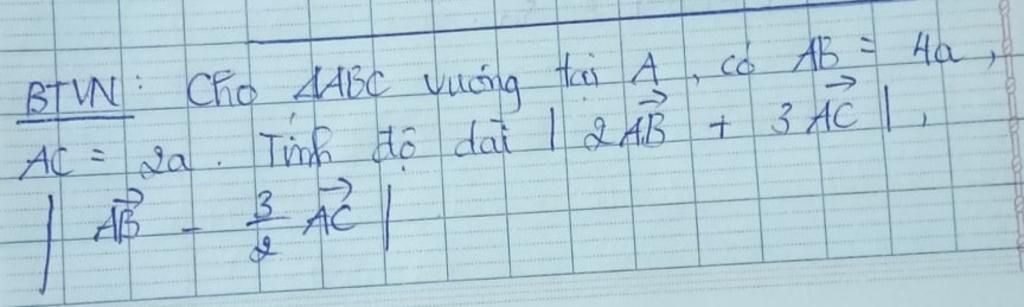 BTVN: Cho ΔABC vuông tại A, có AB = 4a,
AC = 2a. Tính độ dài | 2\overrightarrow{AB} + 3\overrightarrow{AC} |,
| \overrightarrow{AB} - \frac{3}{2} \overrightarrow{AC} |